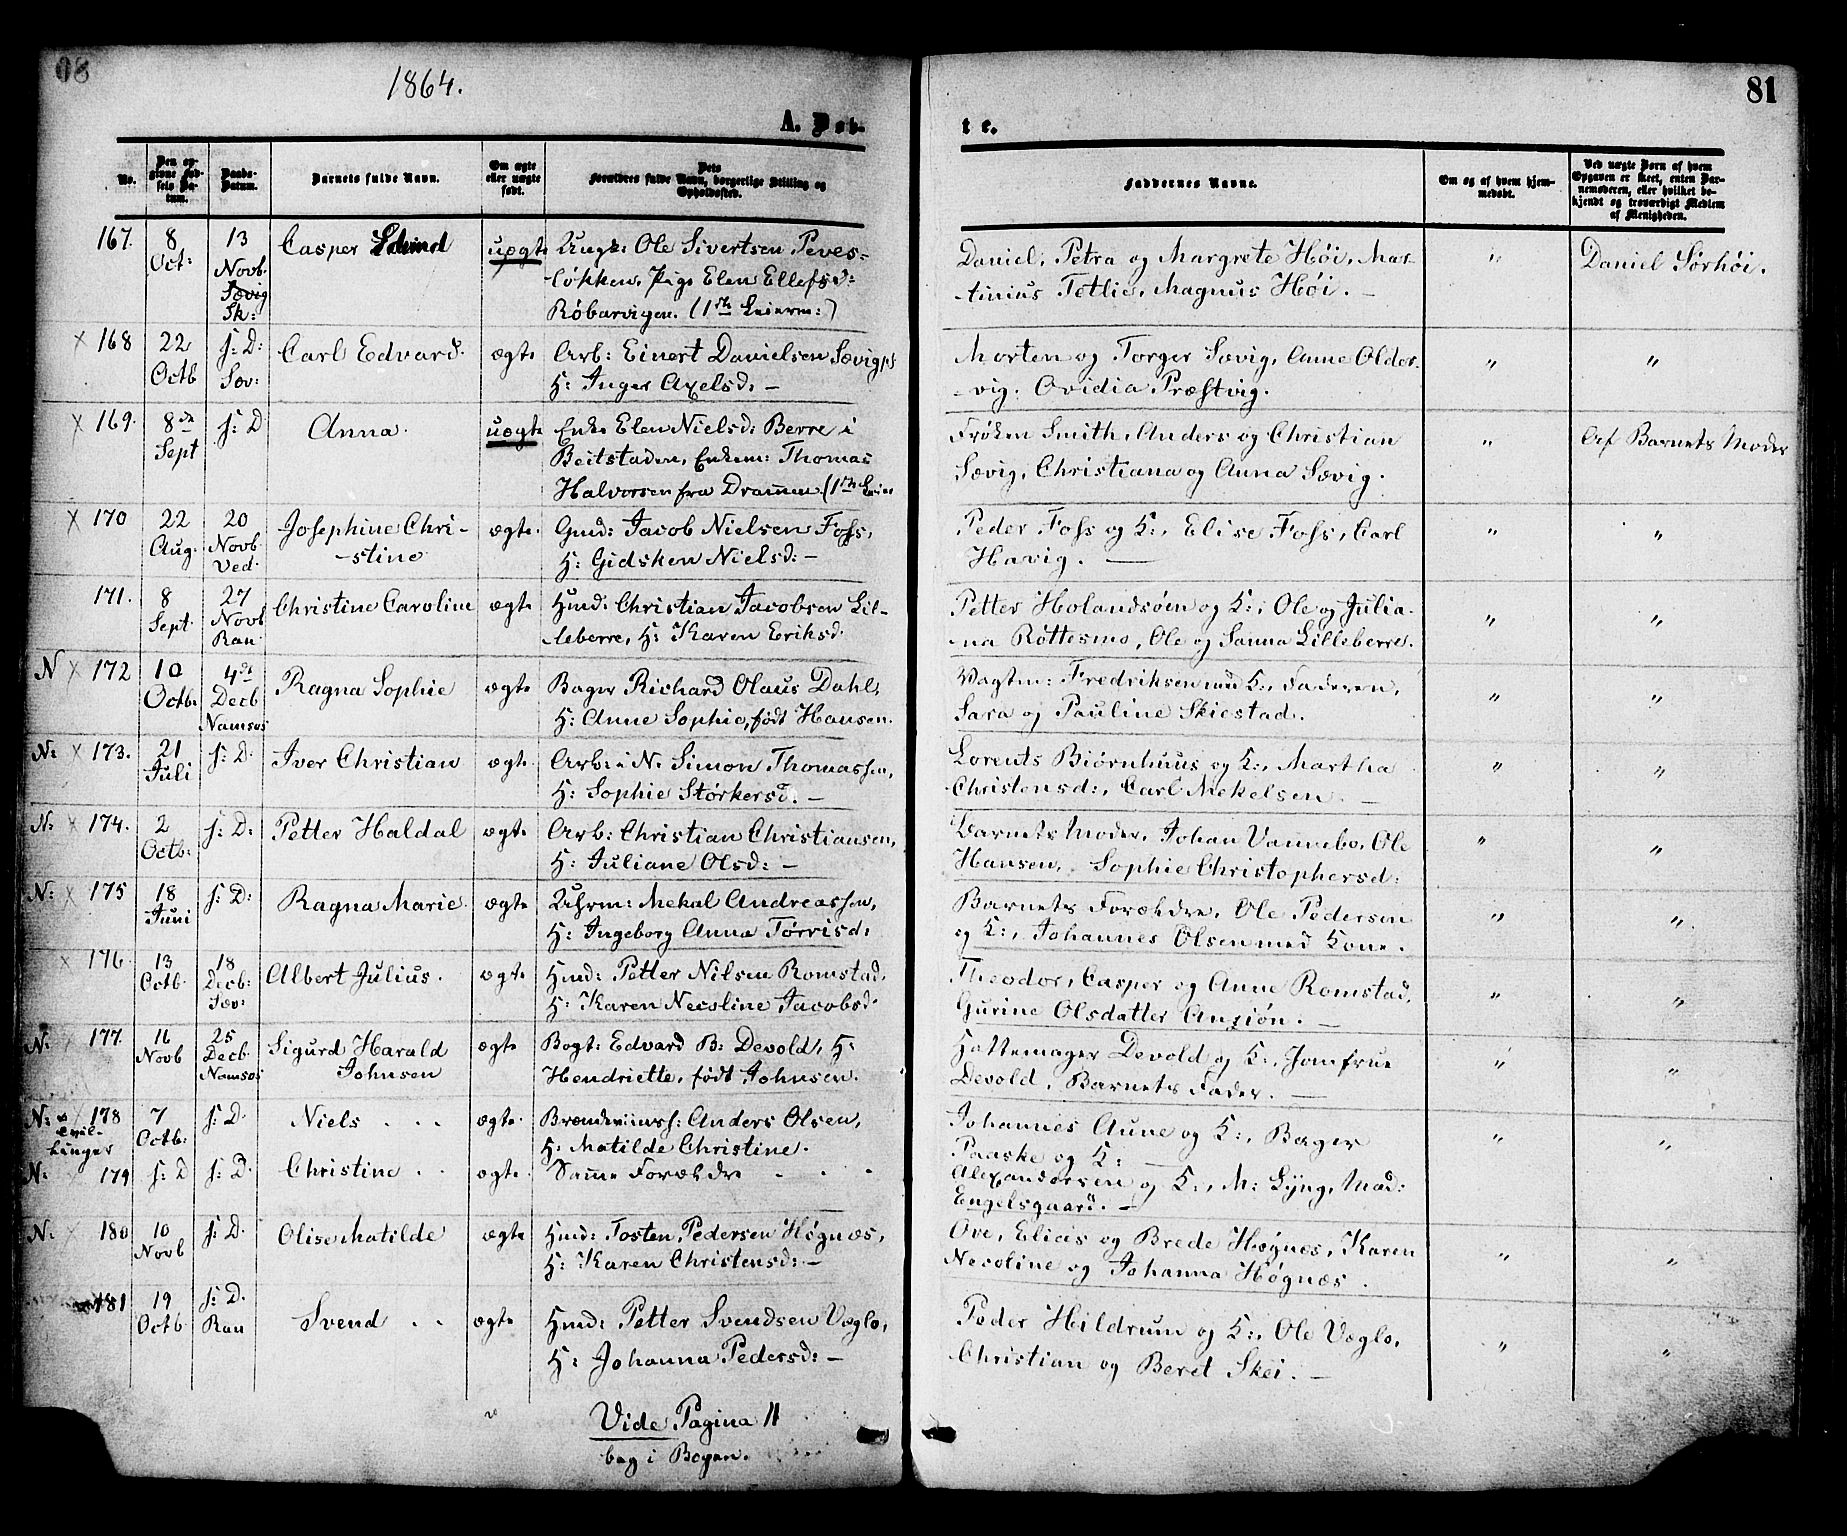 80
1864.
A. Døb-
No.
Den opgivne Fødsels Datum.
Daabs-Datum.
Barnets fulde Navn.
Om ægte eller uægte født.
Dets Forældres fulde Navn, borgerlige Stilling og Opholdssted.
167. 8 Oct: 13 Novb. Sævig Sk: Casper uægte Ungk: Ole Sivertsen Peves-
løkken, Pige Elen Ellefsd:
Røbarvigen. (1ste Leierm:)
× 168 22 Octb f: D: Sæv: Carl Edvard. ægte Arb: Einert Danielsen Sævigps
H: Inger Axelsd. —
× 169. 8de Sept f: D Anna. uægte Enke Elen Nielsd: Berre i
Beitstaden, Enkem: Thomas
Halvorsen fra Drammen. (1ste Leier
× 170 22 Aug. 20 Novb Ved. Josephine Chri-
-stine ægte. Gmd: Jacob Nielsen Foss,
H: Gidsken Nielsd: —
171. 8 Sept. 27 Novb Ran Christine Caroline ægte Hmd: Christian Jacobsen Lil-
leberre, H: Karen Eriksd.
N × 172 10 Octb: 4de Decb Namsos Ragna Sophie ægte Bager Richard Olaus Dahl,
H: Anne Sophie, født Hansen.
N: × 173. 21 Juli f: D. Iver Christian ægte. Arb: i N. Simon Thomassen,
H: Sophie Størkersd. —
N: × 174. 2 Octb: f: D: Petter Haldal ægte Arb: Christian Christiansen,
H: Juliane Olsd: —
N: × 175 18 Juni f: D: Ragna Marie. ægte Uhrm: Mekal Andreassen,
H: Ingeborg Anna Tørrisd:
× 176. 13 Octb. 18 Decb: Sæv: Albert Julius. ægte Hmd: Petter Nilsen Romstad,
H: Karen Necoline Jacobsd.
N: 177. 16 Novb 25 Decb. Namsos Sigurd Harald
Johnsen ægte Bogt: Edvard B: Devold, H:
Hendriette, født Johnsen.
N: × 178 7 Octb: f: D. Niels . . . ægte. Brændeviinsh: Anders Olsen,
Tvil-
linger
H: Matilde Christine.
N: 179 f: D f: D. Christine . . ægte. Samme Forældre - . . .
N: × 180 10 Novb f: D. Olise Matilde ægte Hmd: Tosten Pedersen Høgnæs,
H: Karen Christensd: —
181 19 Octb f: D. Ran Svend . . ægte Hmd: Petter Svendsen Væglo,
H: Johanna Pedersd: —
Vide Pagina 11
bag i Bogen.
81
te.
Faddernes Navne.
Om og af hvem hjemmedøbt.
Ved uægte Børn af hvem Opgaven er skeet, enten Barnemoderen, eller hvilket bekjendt og troværdigt Medlem af Menigheden.
Daniel, Petra og Margrete Høi, Mar- " Daniel Sørhøi.
tinius Tetlie, Magnus Høi. —
Morten og Torger Sævig, Anne Older- " "
-vig. Ovidia Præstvig.
Frøken Smith, Anders og Christian " Af Barnets Moder
Sævig, Christiana og Anna Sævig.
Peder Foss og K:, Elise Foss, Carl " "
Havig. —
Petter Holandsøen og K:, Ole og Julia- " "
-na Røttesmo, Ole og Sanna Lilleberre.
Vagtm: Fredriksen med K:, Faderen, " "
Sara og Pauline Skiestad.
Lorents Biørnhuus og K:, Martha " "
Christensd:, Carl Mekelsen. —
Barnets Moder, Johan Vannebo, Ole " "
Hansen, Sophie Christophersd:
Barnets Forældre, Ole Pedersen " "
og K:, Johannes Olsen med Kone.
Theodor, Casper og Anne Romstad, " "
Gurine Olsdatter Anziøn. —
Hattemager Devold og K:, Jomfrue " "
Devold, Barnets Fader. —
Johannes Aune og K:, Bager " "
Paaske og K: —
Alexandersen og K:, M: Lyng, Mad:
Engelsgaard. —
Ove, Elias og Brede Høgnes, Karen " "
Necoline og Johanna Høgnæs.
Peder Hildrum og K:, Ole Væglo, " "
Christian og Beret Skei. —